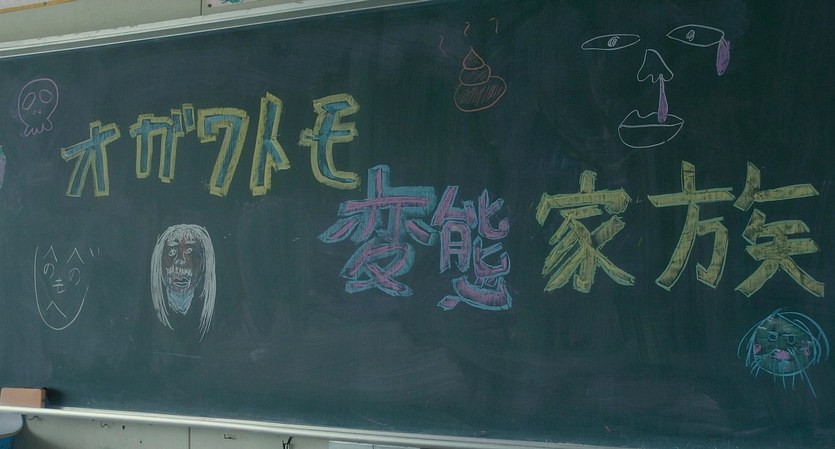 オガワトモ
変態家族
へへ
のの
も
へ